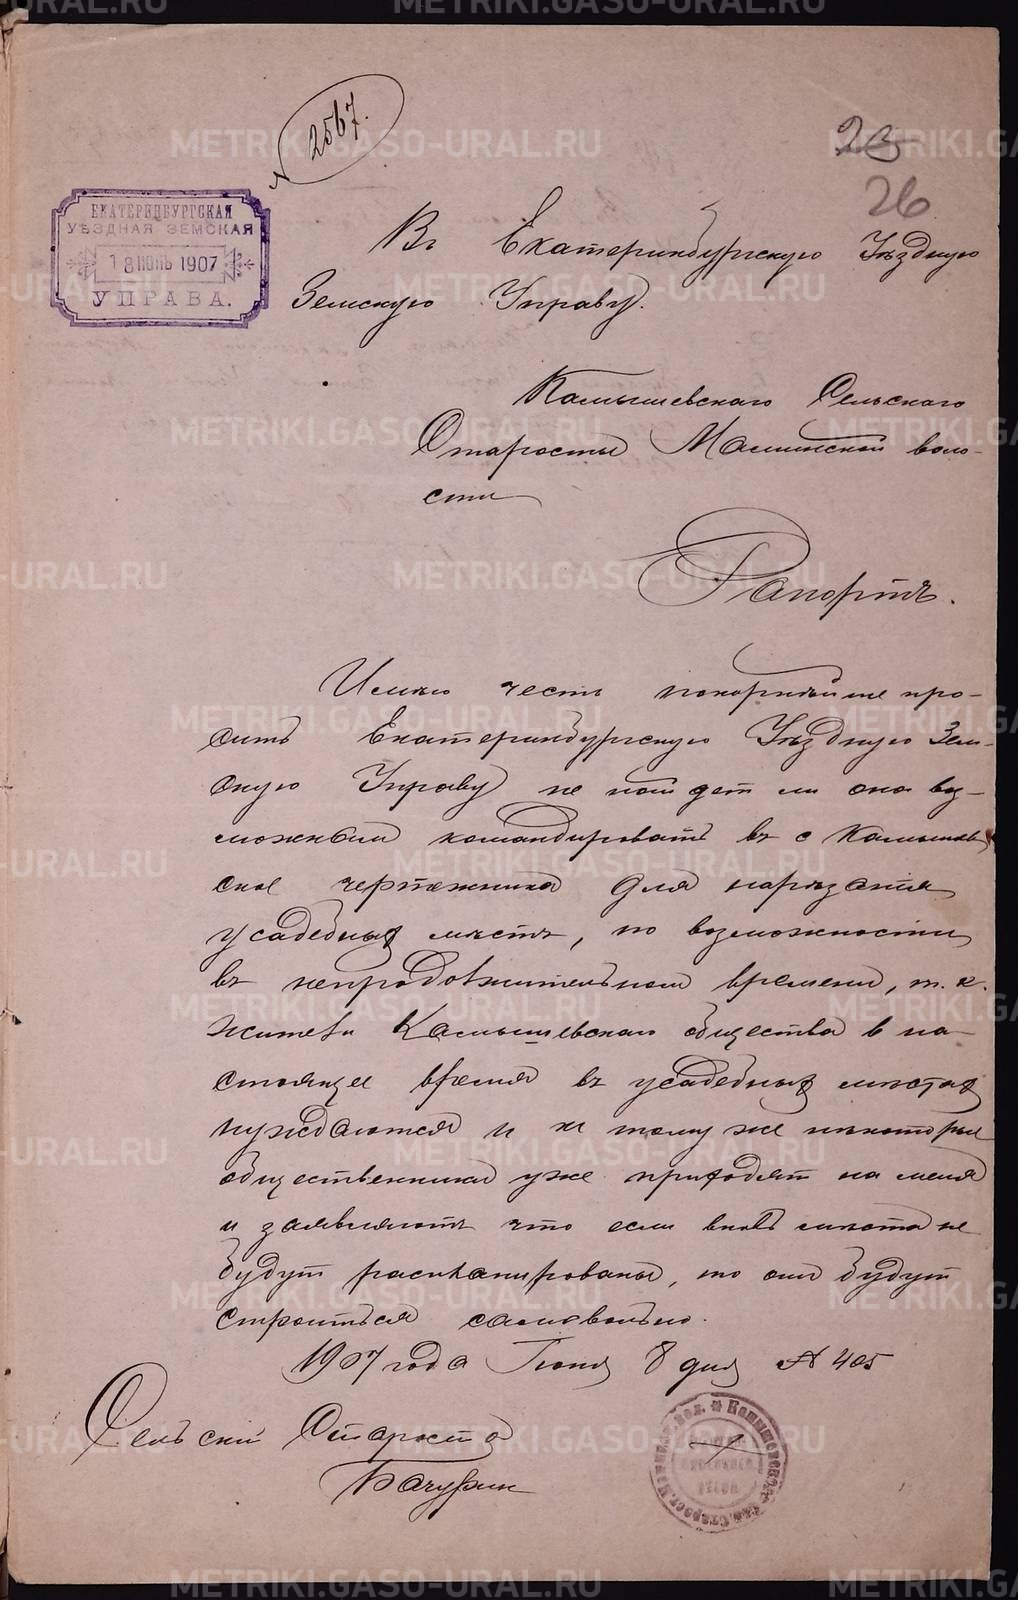 2567.
23
26
ЕКАТЕРИНБУРГСКАЯ
УѢЗДНАЯ ЗЕМСКАЯ
18 ІЮНЬ 1907
УПРАВА.
Въ Екатеринбургскую Уѣздную
Земскую Управу.
Камышевскаго Сельскаго
Старосты Маминской воло-
сти
Рапортъ.
Имѣю честь покорнѣйше про-
сить Екатеринбургскую Уѣздную Зем-
скую Управу не найдет ли она во-
зможным командировать въ с Камышев
ское чертежника для нарѣзания
усадебных мѣстъ, по возможности
въ непродолжительном времени, т. к.
жители Камышевскаго общества в на-
стоящее время въ усадебных мѣстах
нуждаются и к тому же нѣкоторые
общественники уже приходят на меня
и заявляютъ что если вновь мѣста не
будут распланированы, то они будут
строиться самовольно.
1907 года Июня 8 дня № 405
Сельский Староста
Бачурин
METRIKI.GASO-URAL.RU